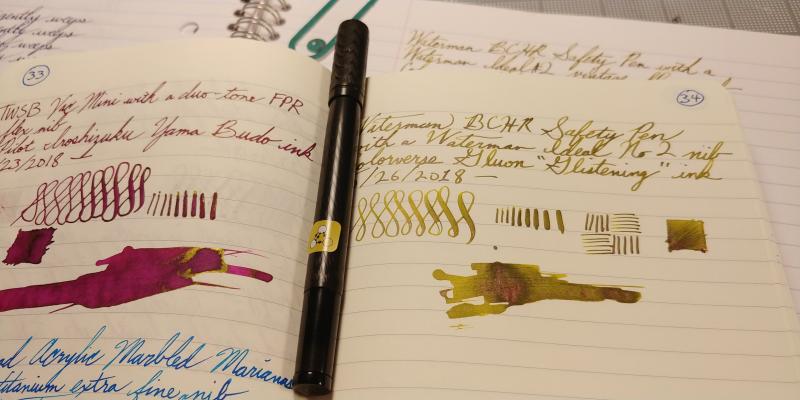 gently weeps
gently weeps
weeps
Waterman BCHR Safety Pen with a
Waterman Ideal #2 vintage
33
TWSB Vac Mini with a duo-tone FPR
flex nib
Pilot Iroshizuku Yama Budo ink
/23/2018
Acrylic Marbled Marianas
titanium extra fine nib
34
Waterman BCHR Safety Pen
with a Waterman Ideal No 2 nib
Colorverse Gluon "Glistening" ink
/26/2018